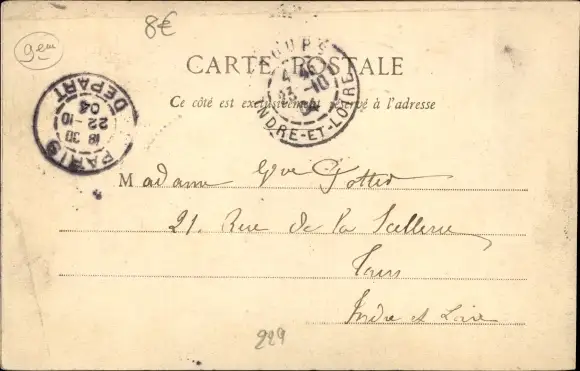 8€
9em
CARTE POSTALE
Ce côté est exclusivement réservé à l'adresse
TOURS
4 45
23 -10
04
INDRE-ET-LOIRE
PARIS
18 30
22 -10
04
DEPART
Madame
21. Rue de la Scellerie
Tours
Indre et Loire
229